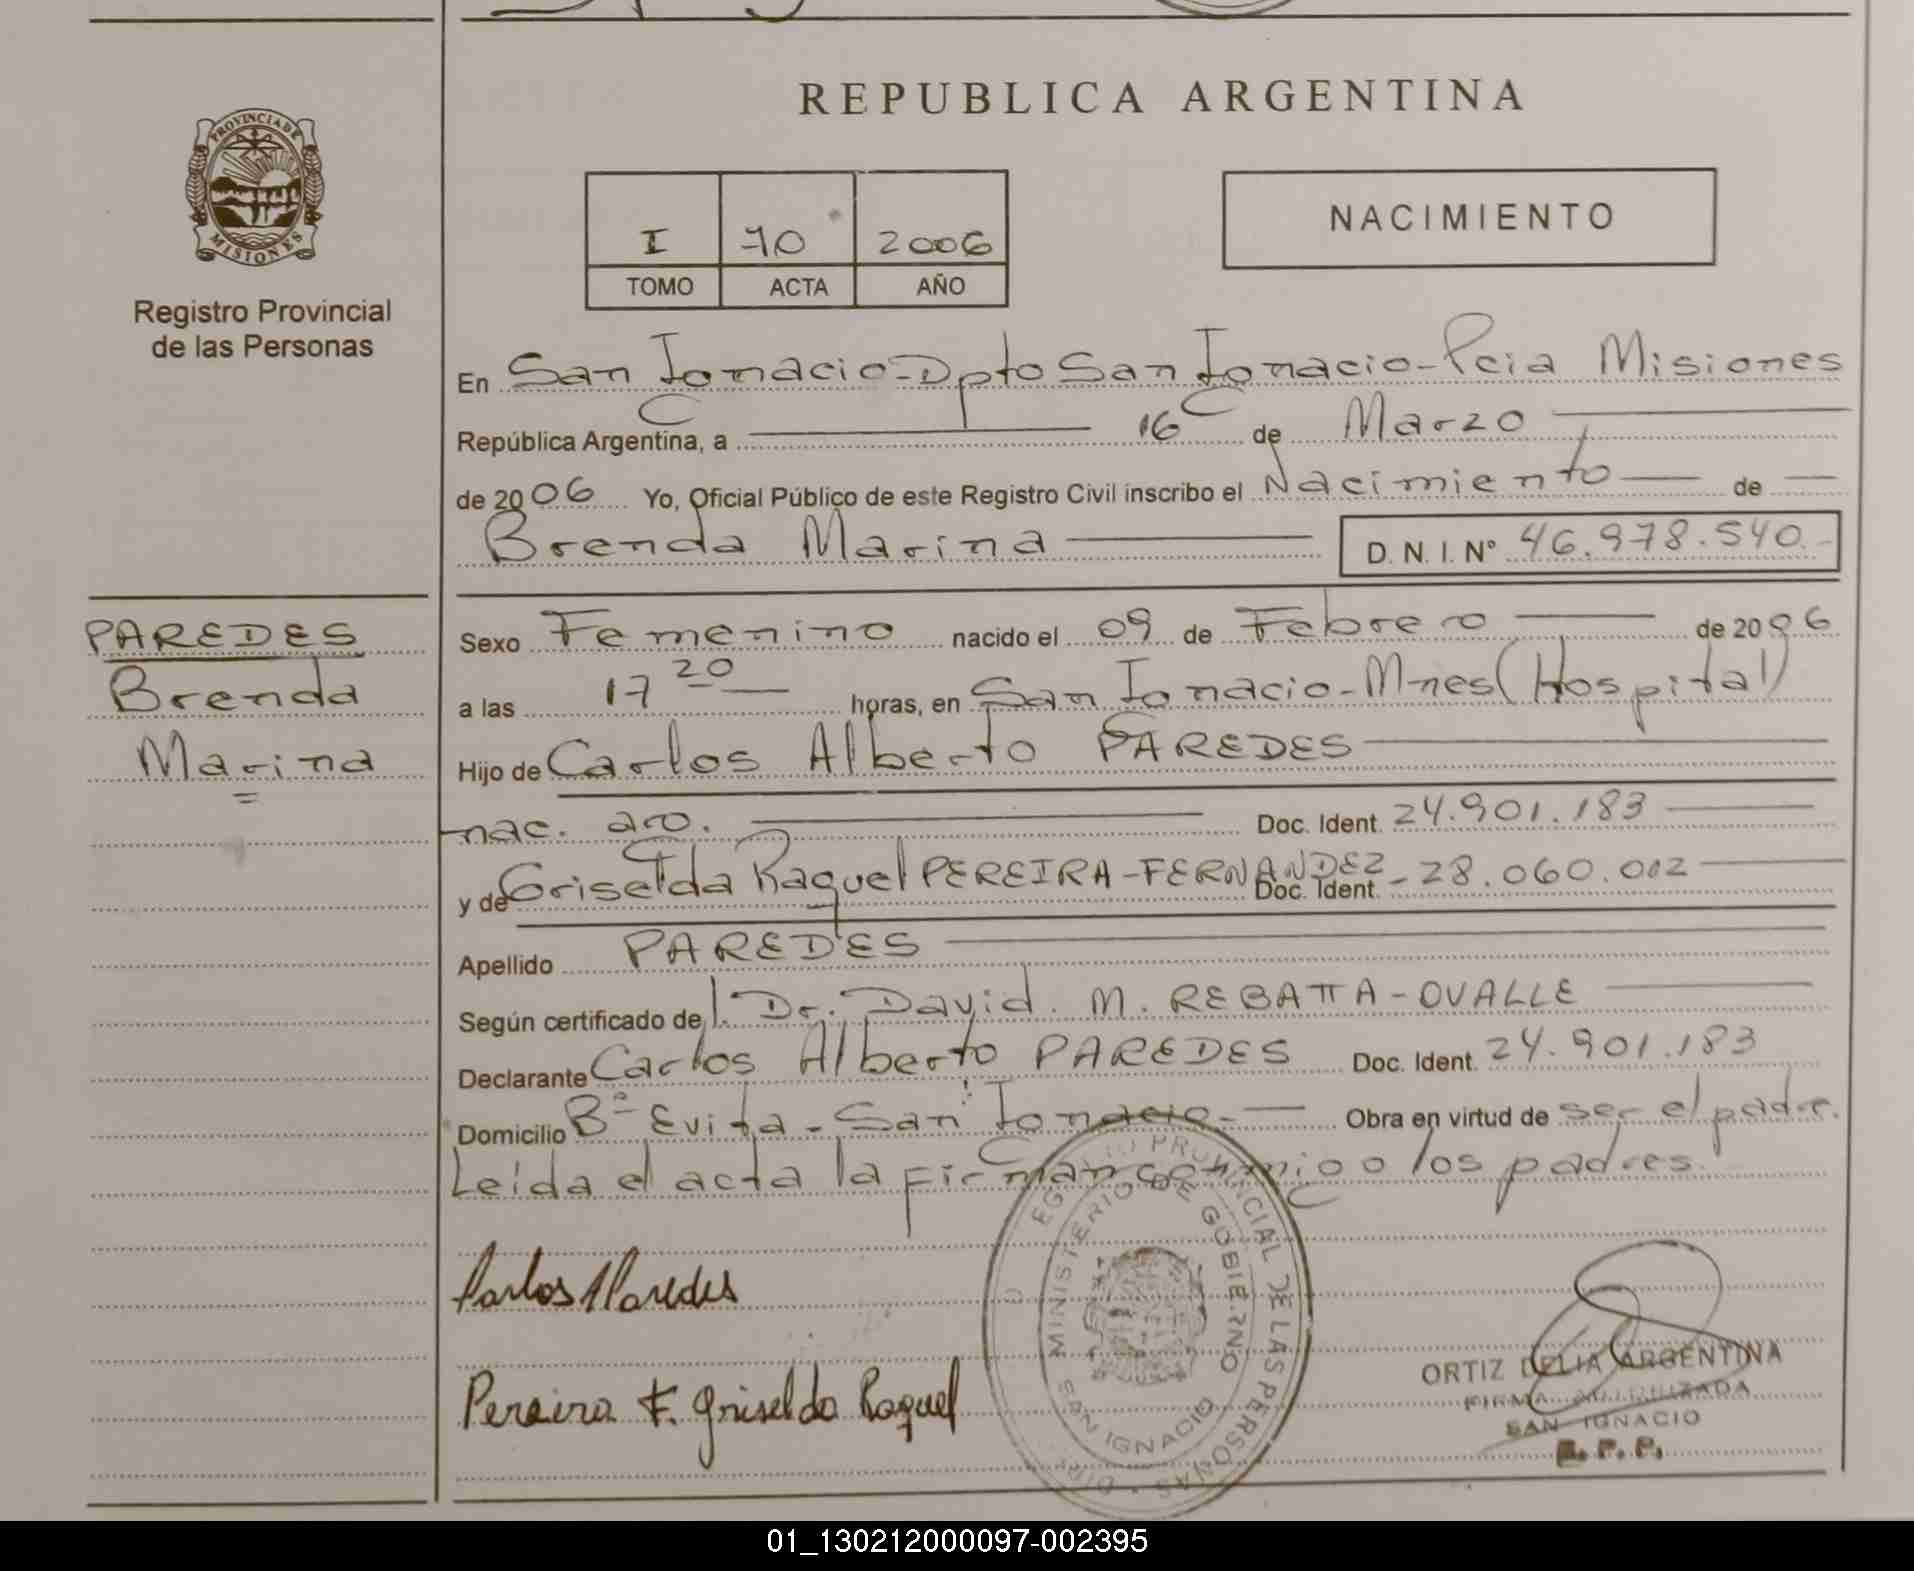 PROVINCIA DE
MISIONES
Registro Provincial
de las Personas
REPUBLICA ARGENTINA
I 70 2006
TOMO ACTA AÑO
NACIMIENTO
En San Ignacio-Dpto San Ignacio-Pcia Misiones
República Argentina, a 16 de Marzo
de 2006 Yo, Oficial Público de este Registro Civil inscribo el Nacimiento de
Brenda Marina D. N. I. Nº 46.978.540.-
PAREDES
Brenda
Marina
Sexo Femenino nacido el 09 de Febrero de 2006
a las 17 20 horas, en San Ignacio-Mnes (Hospital)
Hijo de Carlos Alberto PAREDES
nac. arg. Doc. Ident. 24.901.183
y de Griselda Raquel PEREIRA-FERNANDEZ Doc. Ident. 28.060.002
Apellido PAREDES
Según certificado del Dr. David M. REBATTA-OVALLE
Declarante Carlos Alberto PAREDES Doc. Ident. 24.901.183
Domicilio Bº Evita - San Ignacio.- Obra en virtud de ser el padre.
Leída el acta la firman conmigo los padres.
Carlos A Paredes
Pereira F. Griselda Raquel
PROVINCIAL DE LAS PERSONAS
MINISTERIO DE GOBIERNO
SAN IGNACIO
ORTIZ DELIA ARGENTINA
FIRMA AUTORIZADA
SAN IGNACIO
R. P. P.
01_130212000097-002395